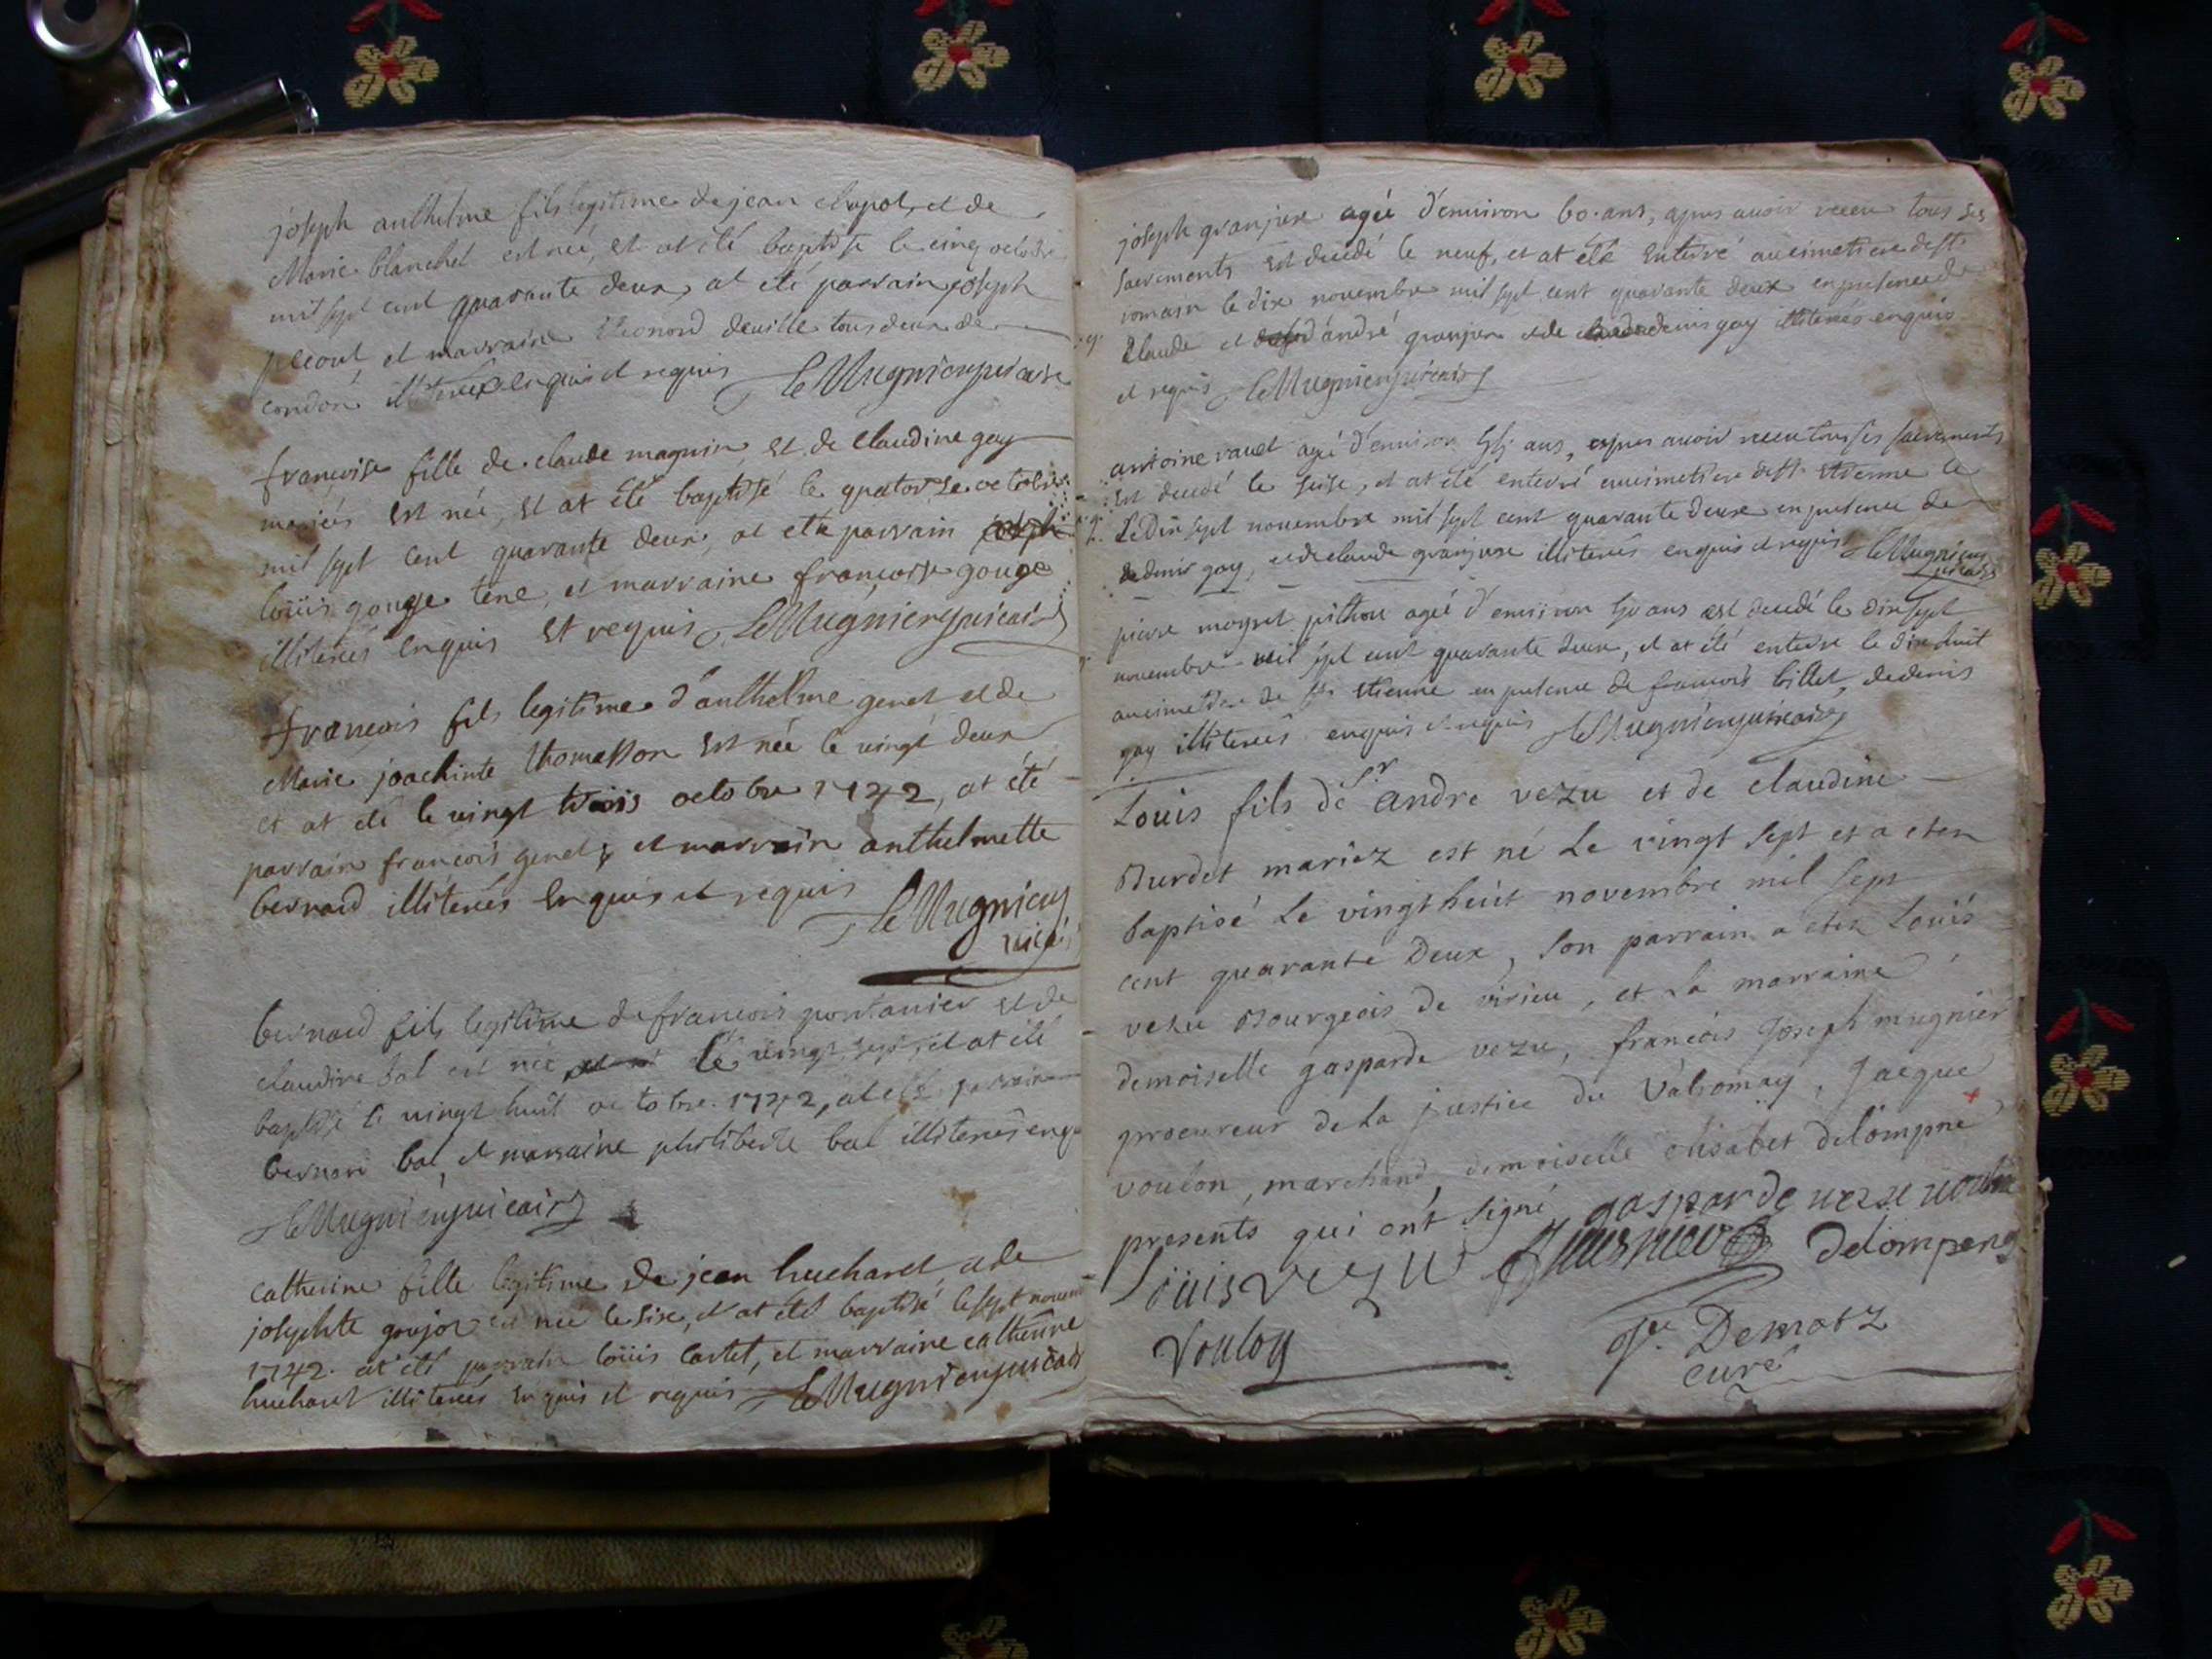 joseph anthelme fils legitime de jean chapot, et de
Marie blanchet est née, et at été baptisé le cinq octobre
mil sept cent quarante deux, at été parrain joseph
et marraine deville tous deux de
condon illiterés enquis et requis LeMugnier vicaire
françoise fille de claude magnin, et de claudine gay
mariés est née, et at été baptisé le quatorse octobre
mil sept cent quarante deux, at eté parrain
loüis gouge tene, et marraine françoise gouge
illiterés enquis et requis LeMugnier vicair
francois fils legitime d'anthelme genet et de
Marie joachinte thomasson est née le vingt deux
et at été le vingt trois octobre 1742, at été
parrain francois genet, et marrain anthelmette
bernard illiterés enquis et requis LeMugnier
vicair
bernard fils legitime de francois pontanier et de
claudine bal est née le vingt sept, et at été
baptisé le vingt huit octobre 1742, at eté parrain
bernard bal, et marraine philiberte bal illiterés enq
LeMugnier vicair
catherine fille legitime de jean hucharet et de
josephte goujon est née le six, et at été baptisé le sept novem
1742. at été parrain loüis cartet, et marraine catherine
hucharet illiterés enquis et requis LeMugnier vicair
joseph granjere agée d'environ 60. ans, apres avoir receu tous ses
sacrements est decédé le neuf, et at été enterré au cimetiere de st
romain le dix novembre mil sept cent quarante deux en presence de
claude et d'andré granjere et de denis gay illiterés enquis
et requis LeMugnier vicair
antoine ravet agé d'environ ans, apres avoir receu tous ses sacrements
est decedé le seise, et at été enterré au cimetiere de st etienne le
Le dix sept novembre mil sept cent quarante deux en presence de
denis gay, et de claude granjere illiterés enquis et requis LeMugnier
vicair
pierre moyret pithon agée d'environ ans est decedé le dix sept
novembre mil sept cent quarante deux, et at été enterré le dix huit
au cimetiere de st etienne en presence de francois billet, de denis
gay illiterés enquis et requis LeMugnier vicair
Louis fils de Sr andre vezu et de claudine
Burdet mariez est né Le vingt sept et a eter
baptisé Le vingt heut novembre mil sept
cent quarante Deux, son parrain a eter Louis
vezu Bourgeois de virieu, et La marraine
demoiselle gasparde vezu, francois Joseph mugnier
procureur de La justice du Valromay, Jacque
voulon, marchand, demoiselle elisabet delompné
presents qui ont signé gasparde veze voulon
loüis vezu Mugnier delompene
voulon Demotz
curé